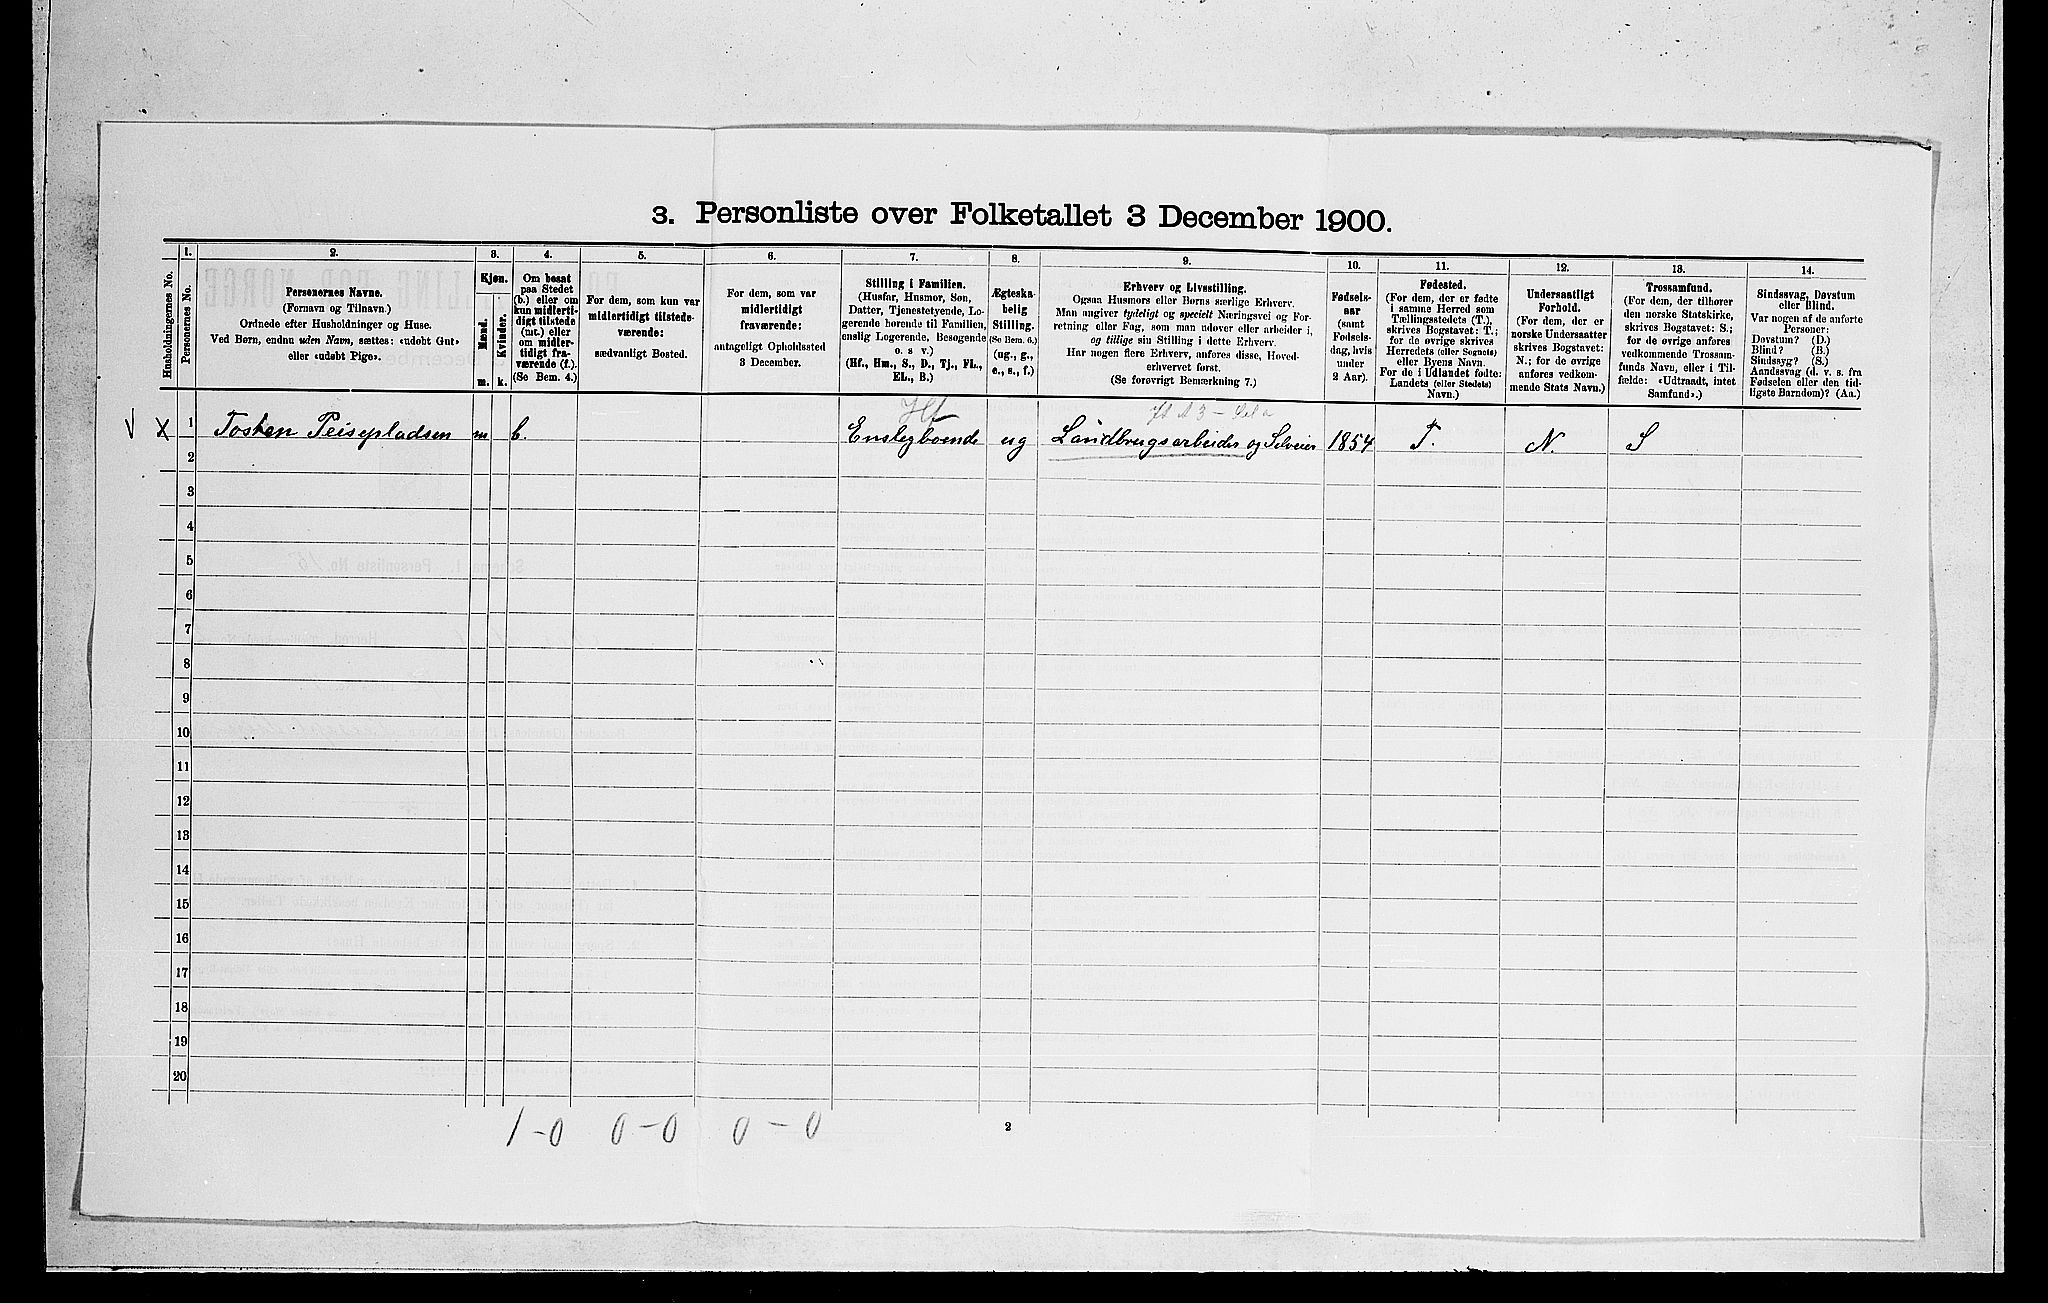 3. Personliste over Folketallet 3 December 1900.
Husholdningernes No.
1.
Personernes No.
2.
Personernes Navne.
(Fornavn og Tilnavn.)
Ordnede efter Husholdninger og Huse.
Ved Børn, endnu uden Navn, sættes: «udøbt Gut»
eller «udøbt Pige».
3.
Kjøn.
Mænd.
Kvinder.
m. k.
4.
Om bosat
paa Stedet
(b.) eller om
kun midlerti-
digt tilstede
(mt.) eller
om midler-
tidigt fra-
værende (f.).
(Se Bem. 4.)
5.
For dem, som kun var
midlertidigt tilstede-
værende:
sædvanligt Bosted.
6.
For dem, som var
midlertidigt
fraværende:
antageligt Opholdssted
3 December.
7.
Stilling i Familien.
(Husfar, Husmor, Søn,
Datter, Tjenestetyende, Lo-
gerende hørende til Familien,
enslig Logerende, Besøgende
o. s v.)
(Hf., Hm., S., D., Tj., FL.,
EL., B.)
8.
Ægteska-
belig
Stilling.
(Se Bem. 6.)
(ug., g.,
e., s., f.)
9.
Erhverv og Livsstilling.
Ogsaa Husmors eller Børns særlige Erhverv.
Man angiver tydeligt og specielt Næringsvei og For-
retning eller Fag, som man udøver eller arbeider i,
og tillige sin Stilling i dette Erhverv.
Har nogen flere Erhverv, anføres disse, Hoved-
erhvervet først.
(Se forøvrigt Bemærkning 7.)
10.
Fødsels-
aar
(samt
Fødsels-
dag, hvis
under
2 Aar).
11.
Fødested.
(For dem, der er fødte
i samme Herred som
Tællingsstedets (T.),
skrives Bogstavet: T.;
for de øvrige skrives
Herredets (eller Sognets)
eller Byens Navn.
For de i Udlandet fødte:
Landets (eller Stedets)
Navn.)
12.
Undersaatligt
Forhold.
(For dem, der er
norske Undersaatter
skrives Bogstavet:
N.; for de øvrige
anføres vedkom-
mende Stats Navn.)
13.
Trossamfund.
(For dem, der tilhører
den norske Statskirke,
skrives Bogstavet: S.;
for de øvrige anføres
vedkommende Trossam-
funds Navn, eller i Til-
fælde: «Udtraadt, intet
Samfund».)
14.
Sindssvag, Døvstum
eller Blind.
Var nogen af de anførte
Personer:
Døvstum? (D.)
Blind? (B.)
Sindssyg? (S.)
Aandssvag (d. v. s. fra
Fødselen eller den tid-
ligste Barndom)? (Aa.)
Hf
V X 1 Tosten Peisepladsen m b. Enslegboende ug Landbrugsarbeider og Selveier 1854 T. N. S
2
3
4
5
6
7
8
9
10
11
12
13
14
15
16
17
18
19
20
1-0 0-0 0-0
2